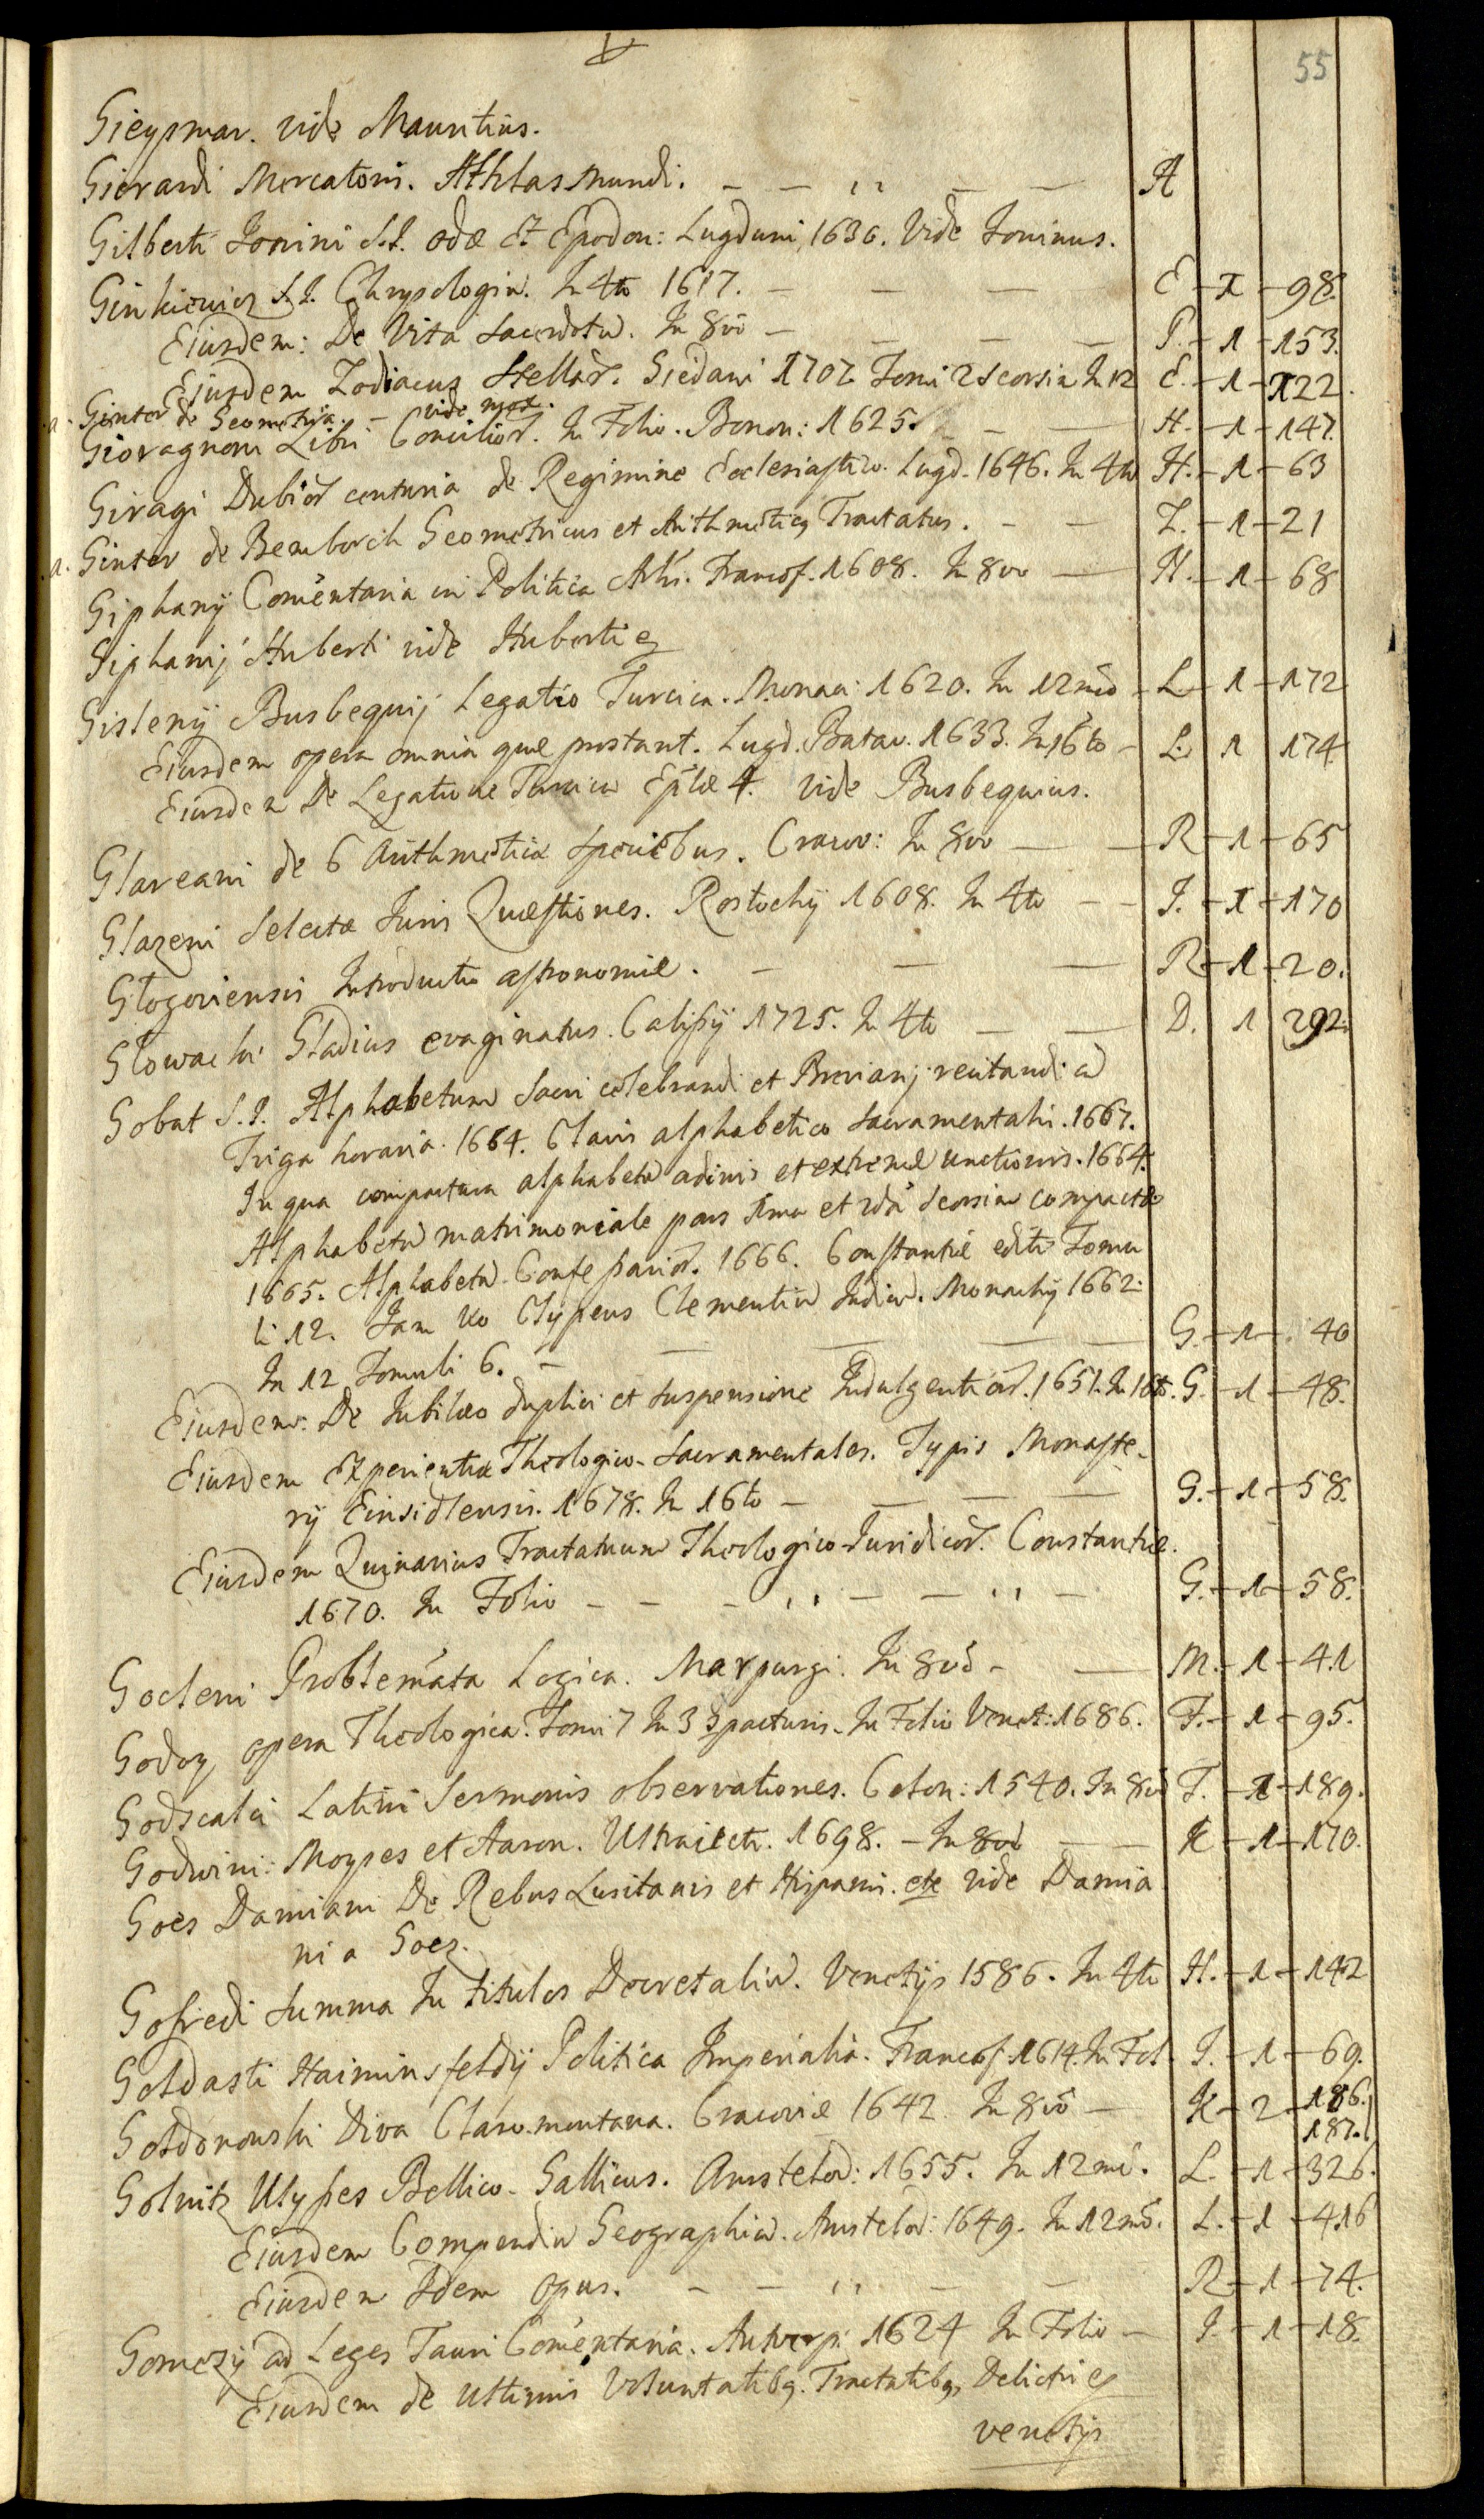 55
Gieysmar. vide Mauritius.
Gierardi Mercatoris. Athlas Mundi. — — ,, — — A
Gilberti Jonini S.J. odæ Et Epodon: Lugduni 1630. Vide Joninus.
Ginkiewicz S.J. Chrysologia. In 4to 1617. — — — E – 1 – 98.
Eiusdem: De Vita Sacerdotū. In 8vo — — — — P. – 1 – 153.
Eiusdem Zodiacus Stellar. Giedani 1702 Tomi 2 Seorsim In 12 E. – 1 – 122.
Ginter de Geometria. — vide mox.
Gioragnoni Libri Concilior. In Folio. Bonon: 1625. — — H. – 1 – 147.
Giragi Dubior centuria de Regimine Ecclesiastico. Lugd. 1646. In 4to H. – 1 – 63
1. Ginter de Bemborch Geometricus et Arithmetics Tractatus. — — Z. – 1 – 21
Giphanij Comentaria in Politica Arti. Francof. 1608. In 8vo — H. – 1 – 68
Giphanij Huberti vide Huberti
Gislenij Busbequij Legatio Turcica. Monaci 1620. In 12mo – L – 1 – 172
Eiusdem opera omnia quæ prostant. Lugd. Batav. 1633. In 16to – L. 1 174
Eiusdem De Legatione Turcica Eplæ 4. vide Busbequius.
Glareani de 6 Arithmeticæ Speciebus. Cracov: In 8vo — — R – 1 – 65
Glazeni Selectæ Juris Quæstiones. Rostochij 1608. In 4to — — I. – 1 – 170
Glogoviensis Introductio astronomiæ. — — — R – 1 – 20.
Glowacki Gladius evaginatus. Calissij 1725. In 4to — — D. 1 292.
Gobat S.J. Alphabetum Sacri celebrandi et Breviarij recitandi cū
Triga horaria. 1664. Clavis alphabetica Sacramentalis. 1667.
In qua compactura alphabetū ordinis et extremæ unctionis. 1664.
Alphabetū matrimoniale pars 1ma et 2da seorsim compactæ
1665. Alphabetū Confessarior. 1666. Constantiæ editi Tomu
li 12. Jam vo Clypeus Clementiū Judicū. Monachij 1662.
In 12 Tomuli 6. — — — — — G. – 1 – 40
Eiusdem: De Jubilæo duplici et suspensione Indulgentiar. 1651. In 16to. G. – 1 – 48.
Eiusdem Experientiæ Theologico-Sacramentales. Typis Monaste-
rij Einsidlensis. 1678. In 16to — — — — G. – 1 – 58.
Eiusdem Quinarius Tractatuum Theologico-Juridicor. Constantiæ.
1670. In Folio — — — ,, — — ,, — G. – 1 – 58.
Goclenii Problemata Logica. Marpurgi. In 8vo – — M. – 1 – 41
Godoy opera Theologica. Tomi 7 In 3 Spacturis. In Folio Venet: 1686. F. – 1 – 95.
Godscalci Latini Sermonis observationes. Colon: 1540. In 8vo T. – 1 – 189.
Godwini: Moyses et Aaron. Ultraiecti. 1698. – In 8vo — — K – 1 – 170.
Goes Damiani De Rebus Lusitanis et Hispanis. etc vide Damia
ni a Goez.
Gofredi Summa In titulos Decretaliū. Venetijs 1586. In 4to H. – 1 – 142
Goldasti Haiminsfeldij Politica Imperialia. Francof 1614. In Fol. I. – 1 – 69.
Goldonowski Diva Claromontana. Cracoviæ 1642. In 8vo — K – 2 – 186.
187.
Golnitz Ulysses Bellico-Gallicus. Amstelod: 1655. In 12mo. L. – 1 – 326.
Eiusdem Compendiū Geographicū. Amstelod: 1649. In 12mo. L. – 1 – 416
Eiusdem Idem opus. — — ,, — — R – 1 – 74.
Gomezij ad Leges Tauri Comentaria. Antverp: 1624 In Folio — I. – 1 – 18.
Eiusdem de Ultimis Voluntatibq. Tractatibq, Delictis
venetijs